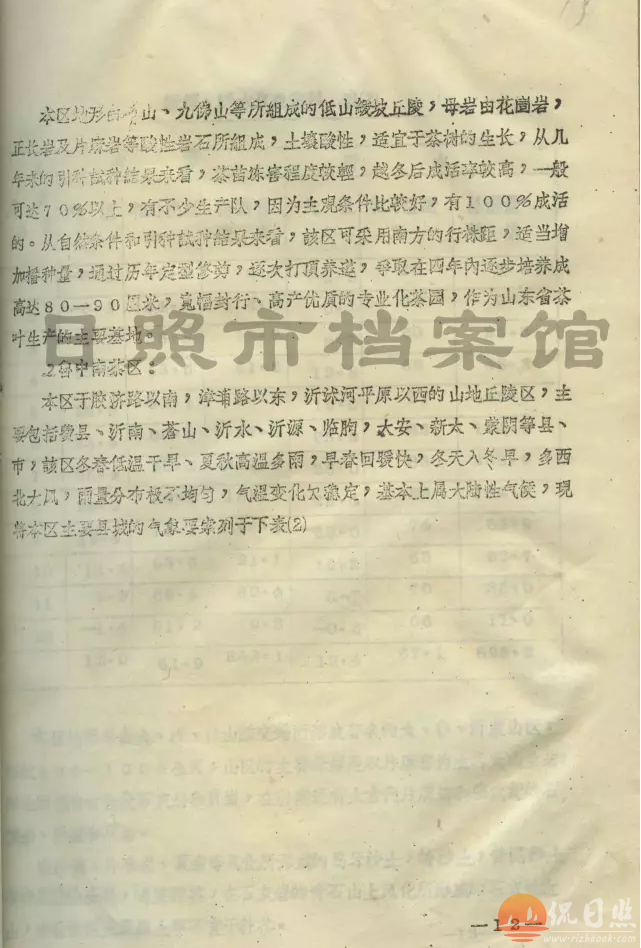 本区地形由 山、九佛山等所組成的低山緩坡丘陵，母岩由花崗岩，
正长岩及片麻岩等酸性岩石所組成，土壤酸性，适宜于茶树的生长，从几
年来的引种試种結果来看，茶苗冻害程度較輕，越冬后成活率較高，一般
可达７０％以上，有不少生产队，因为主观条件比較好，有１００％成活
的。从自然条件和引种試种結果来看，該区可采用南方的行株距，适当增
加播种量，通过历年定型修剪，逐次打顶养蓬，爭取在四年內逐步培养成
高达８０—９０厘米，寬幅封行、高产优质的专业化茶园，作为山东省茶
叶生产的主要基地。
日照市档案馆
2魯中南茶区：
本区于胶济路以南，津浦路以东，沂沭河平原以西的山地丘陵区，主
要包括費县、沂南、蒼山、沂水、沂源、临朐，太安、新太、蒙阴等县、
市，該区冬春低温干旱、夏秋高温多雨，早春回暖快，冬天入冬早，多西
北大风，雨量分布极不均匀，气温变化欠稳定，基本上属大陆性气候，现
将本区主要县城的气象要素列于下表(2)
—１２—
侃日照
www.rizhaook.com